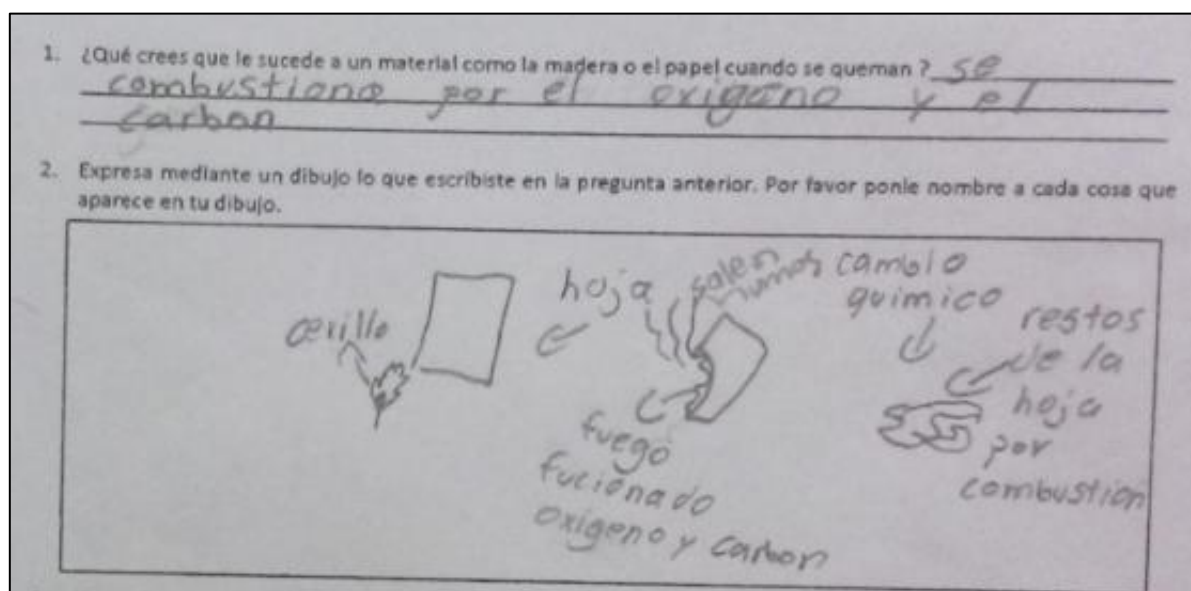 1. ¿Qué crees que le sucede a un material como la madera o el papel cuando se queman ? se
combustiona por el oxigeno y el
carbon
2. Expresa mediante un dibujo lo que escribiste en la pregunta anterior. Por favor ponle nombre a cada cosa que
aparece en tu dibujo.
cerillo
hoja
salen
humos
fuego
fucionado
oxigeno y carbon
cambio
quimico
restos
de la
hoja
por
combustion